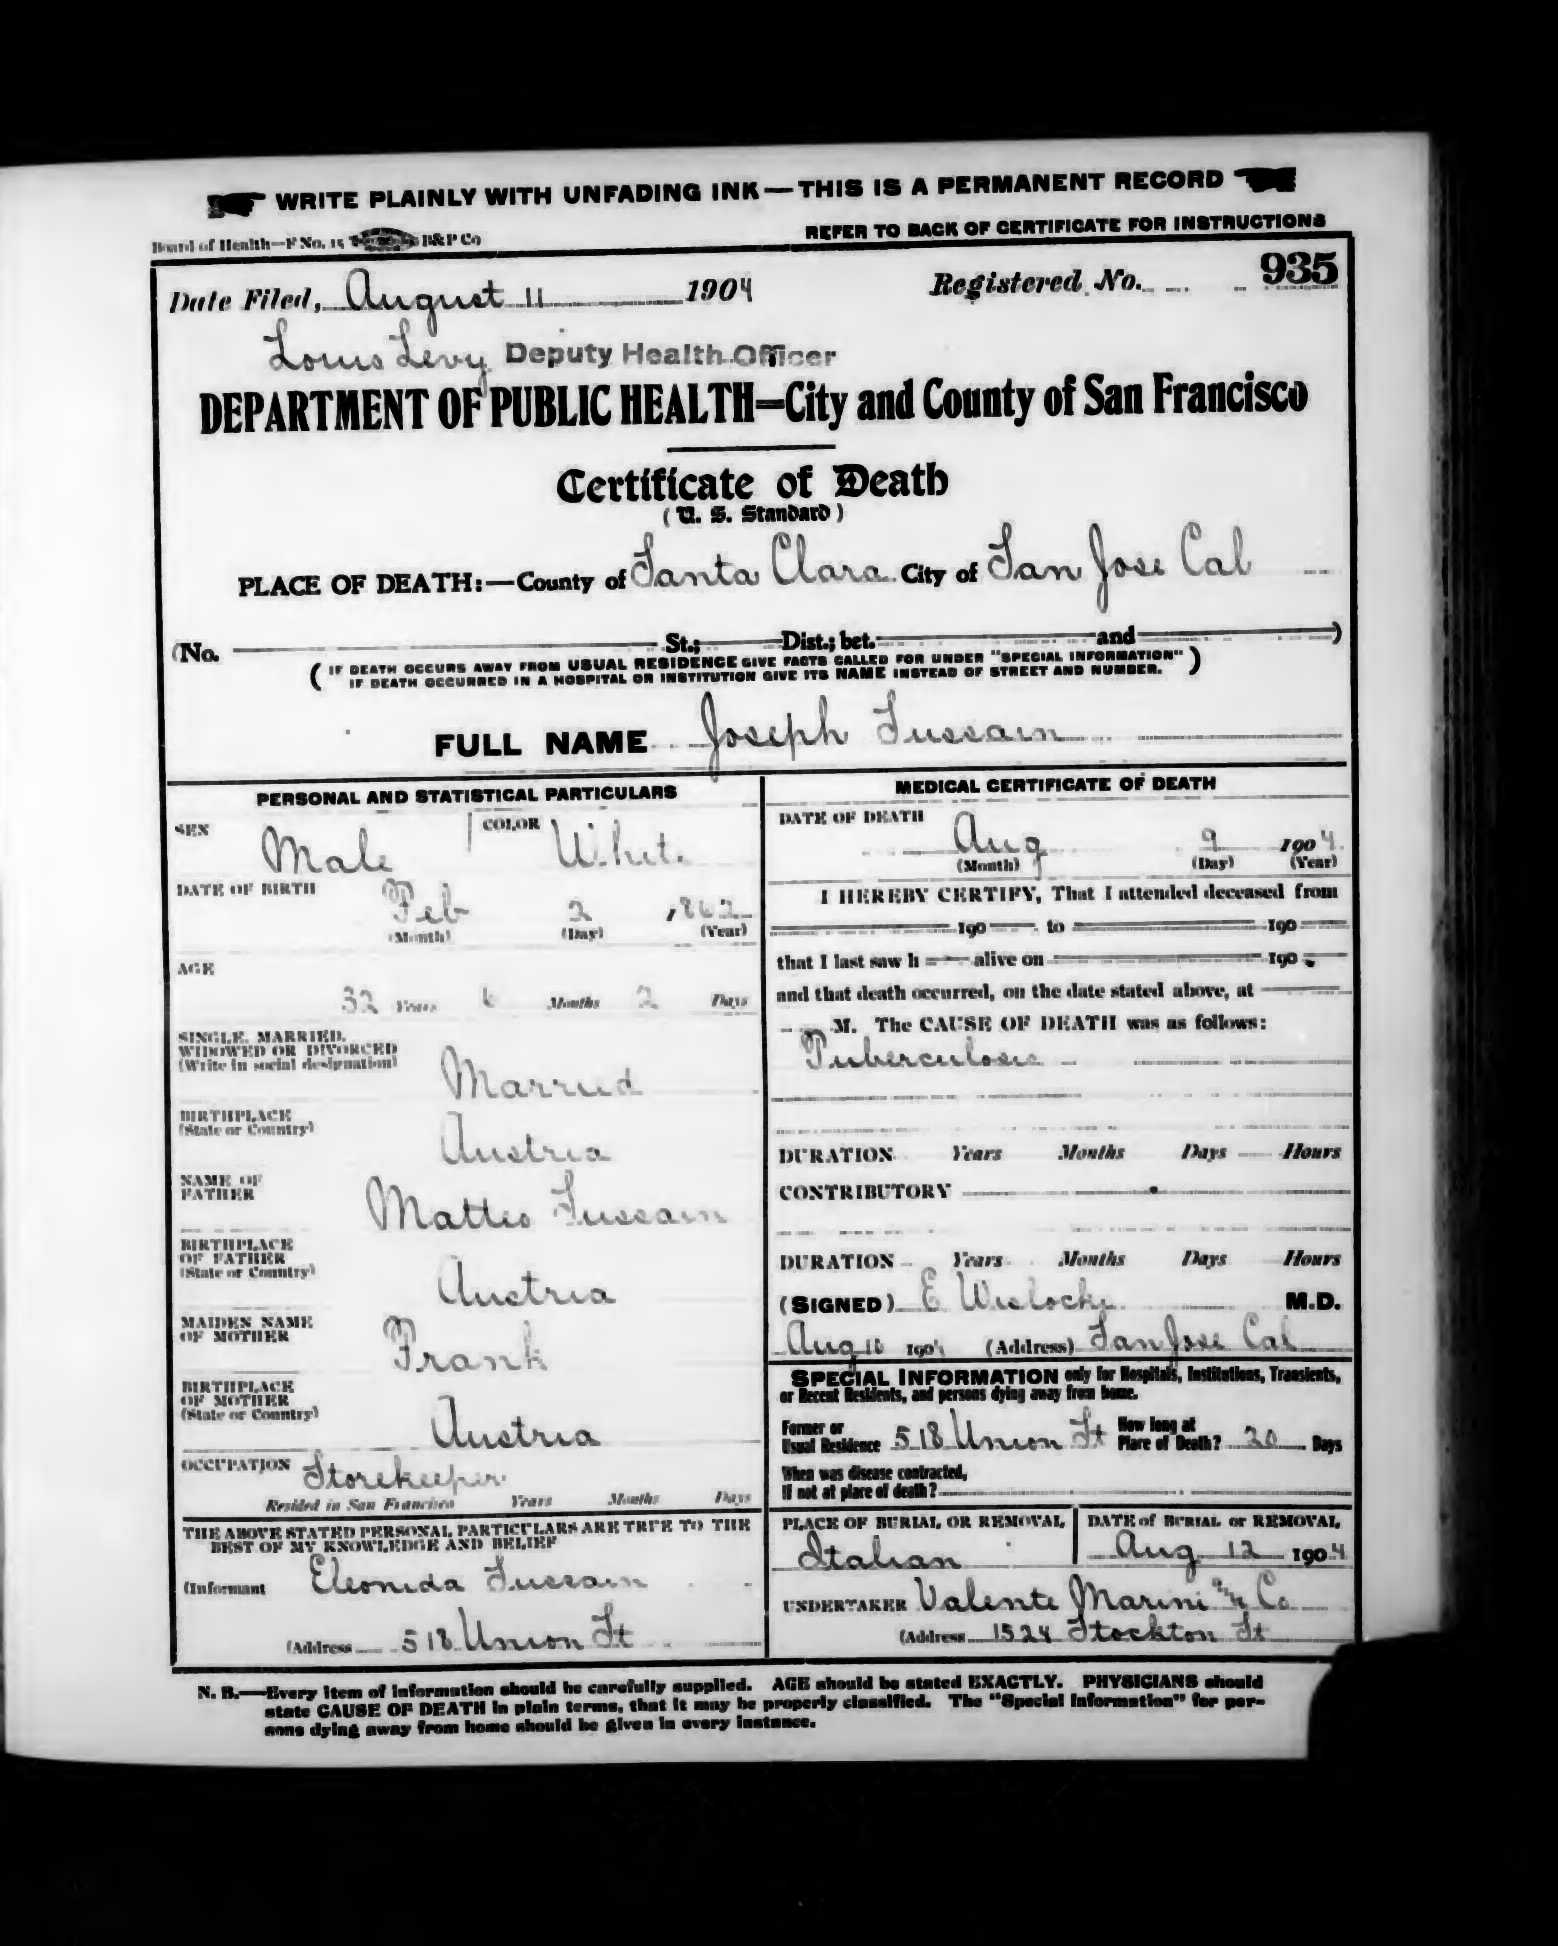 WRITE PLAINLY WITH UNFADING INK—THIS IS A PERMANENT RECORD
Board of Health—F No. 15 B&P Co
REFER TO BACK OF CERTIFICATE FOR INSTRUCTIONS
Date Filed, August 11 1904 Registered No. 935
Louis Levy Deputy Health Officer
DEPARTMENT OF PUBLIC HEALTH—City and County of San Francisco
Certificate of Death
(U. S. Standard)
PLACE OF DEATH:—County of Santa Clara City of San Jose Cal
(No. St.; Dist.; bet. and )
(IF DEATH OCCURS AWAY FROM USUAL RESIDENCE GIVE FACTS CALLED FOR UNDER "SPECIAL INFORMATION"
IF DEATH OCCURRED IN A HOSPITAL OR INSTITUTION GIVE ITS NAME INSTEAD OF STREET AND NUMBER.)
FULL NAME Joseph Sussain
PERSONAL AND STATISTICAL PARTICULARS
SEX Male COLOR White
DATE OF BIRTH Feb 2 1862
(Month) (Day) (Year)
AGE
32 Years 6 Months 2 Days
SINGLE, MARRIED,
WIDOWED OR DIVORCED
(Write in social designation) Married
BIRTHPLACE
(State or Country) Austria
NAME OF
FATHER Matteo Sussain
BIRTHPLACE
OF FATHER
(State or Country) Austria
MAIDEN NAME
OF MOTHER Frank
BIRTHPLACE
OF MOTHER
(State or Country) Austria
OCCUPATION Storekeeper
Resided in San Francisco Years Months Days
THE ABOVE STATED PERSONAL PARTICULARS ARE TRUE TO THE
BEST OF MY KNOWLEDGE AND BELIEF
(Informant Eleonida Sussain
(Address 518 Union St
MEDICAL CERTIFICATE OF DEATH
DATE OF DEATH
Aug 9 1904
(Month) (Day) (Year)
I HEREBY CERTIFY, That I attended deceased from
190 to 190
that I last saw h alive on 190
and that death occurred, on the date stated above, at
M. The CAUSE OF DEATH was as follows:
Tuberculosis
DURATION Years Months Days Hours
CONTRIBUTORY
DURATION Years Months Days Hours
(SIGNED) E Wislocki M.D.
Aug 10 1904 (Address) San Jose Cal
SPECIAL INFORMATION only for Hospitals, Institutions, Transients,
or Recent Residents, and persons dying away from home.
Former or
Usual Residence 518 Union St How long at
Place of Death? 20 Days
When was disease contracted,
If not at place of death?
PLACE OF BURIAL OR REMOVAL DATE of BURIAL or REMOVAL
Italian Aug 12 1904
UNDERTAKER Valente Marini & Co
(Address 1524 Stockton St
N. B.—Every item of information should be carefully supplied. AGE should be stated EXACTLY. PHYSICIANS should
state CAUSE OF DEATH in plain terms, that it may be properly classified. The "Special Information" for per-
sons dying away from home should be given in every instance.